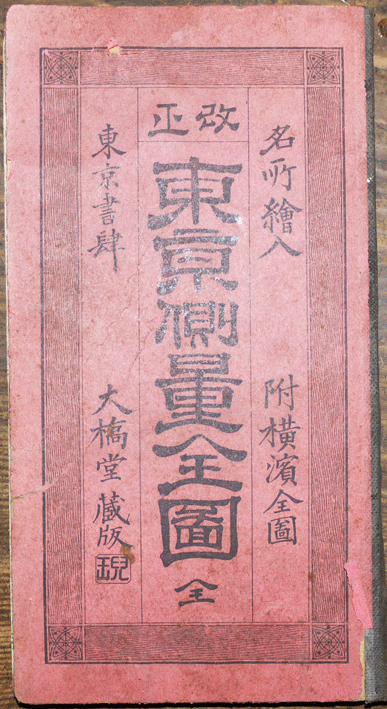 名所繪入　附橫濱全圖
改正
東京側量全圖　全
東京書肆　大橋堂藏版
兒玉